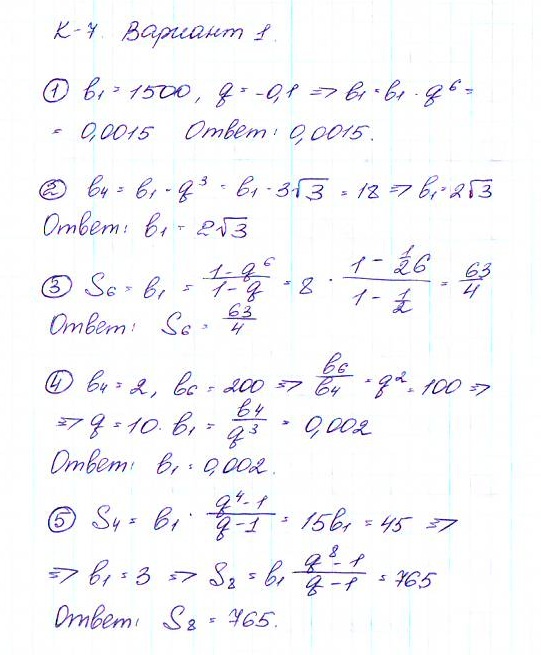 К-7. Вариант 1.
① b₁ = 1500, q = -0,1 => b₁ = b₁ · q⁶ =
= 0,0015 Ответ: 0,0015.
② b₄ = b₁ · q³ = b₁ · 3√3 = 18 => b₁ = 2√3
Ответ: b₁ = 2√3
③ S₆ = b₁ = (1-q⁶)/(1-q) = 8 · (1 - 1/26)/(1 - 1/2) = 63/4
Ответ: S₆ = 63/4
④ b₄ = 2, b₆ = 200 => b₆/b₄ = q² = 100 =>
=> q = 10. b₁ = b₄/q³ = 0,002
Ответ: b₁ = 0,002.
⑤ S₄ = b₁ · (q⁴-1)/(q-1) = 15b₁ = 45 =>
=> b₁ = 3 => S₈ = b₁ (q⁸-1)/(q-1) = 765
Ответ: S₈ = 765.